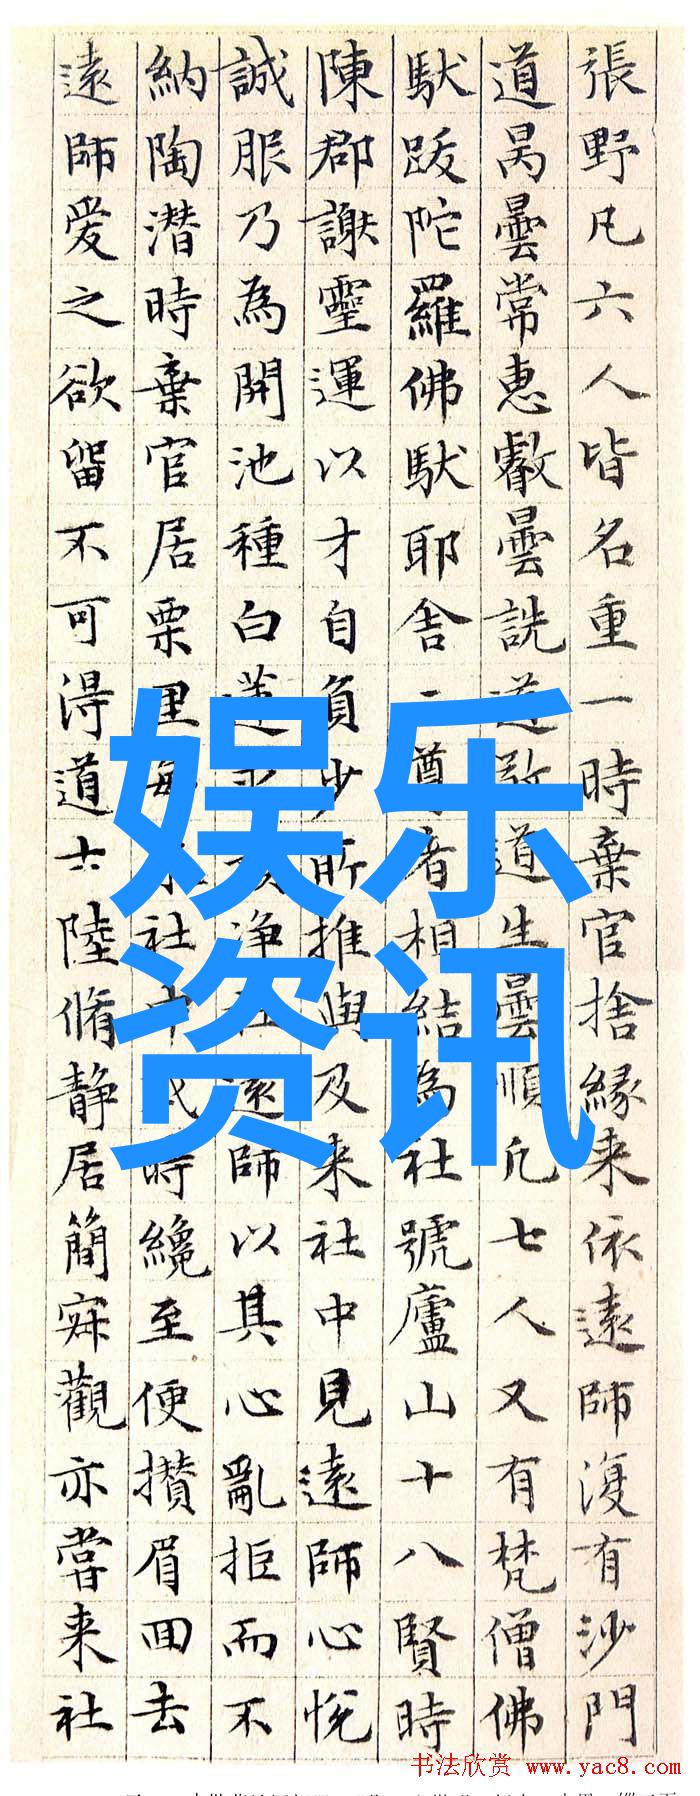 張野凡六人皆名重一時棄官捨緣来依遠師復有沙門
道昺曇常惠叡曇詵道敬道生曇順凡七人又有梵僧佛
馱跋陀羅佛馱耶舍二尊者相結為社號廬山十八賢時
陳郡謝靈運以才自負少所推與及来社中見遠師心悅
誠服乃為開池種白蓮求淨社遠師以其心亂拒而不
納陶潛時棄官居栗里每来社中或時纔至便攢眉回去
遠師爱之欲留不可得道士陸脩静居簡寂觀亦嘗来社
娱乐
资讯
书法欣赏 www.yac8.com